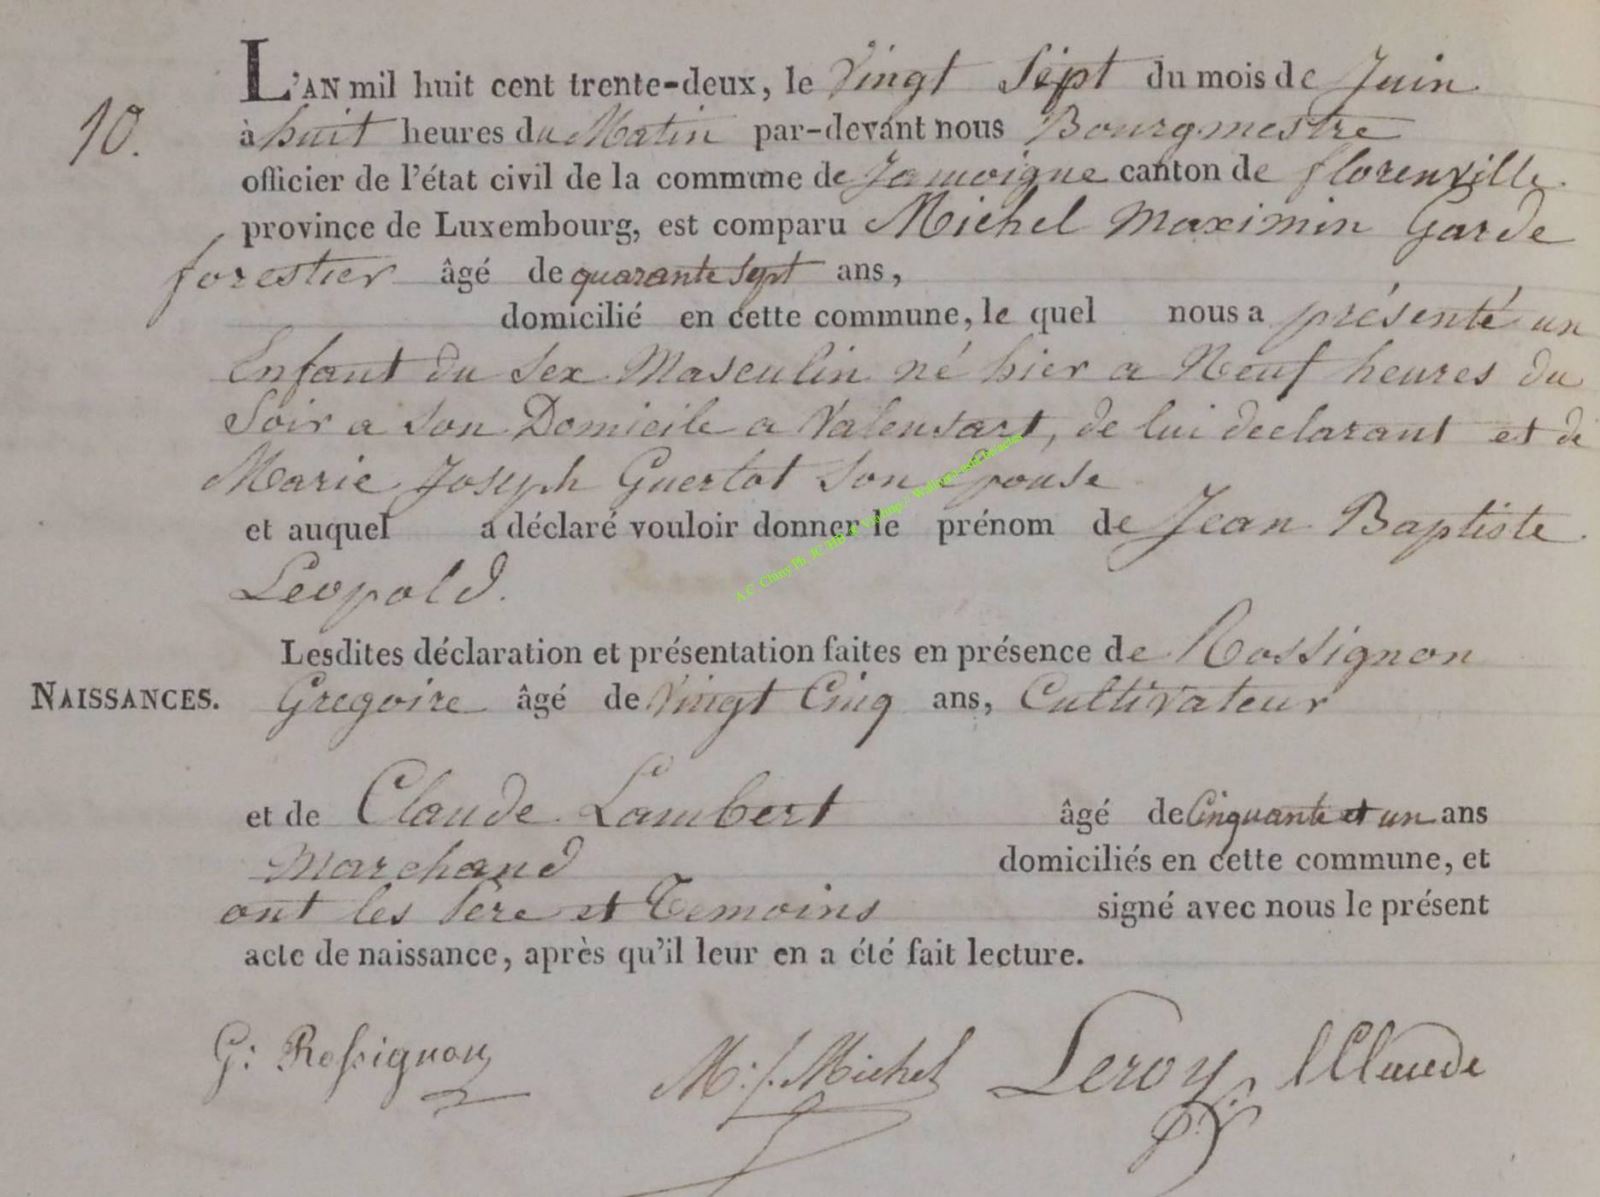 L'AN mil huit cent trente-deux, le Vingt Sept du mois de Juin
10.
à huit heures du Matin par-devant nous Bourgmestre
officier de l'état civil de la commune de Jamoigne canton de florenville
province de Luxembourg, est comparu Michel Maximin Garde
forestier âgé de quarante sept ans,
domicilié en cette commune, le quel nous a présenté un
Enfant du Sex Masculin né hier a Neuf heures du
Soir a Son Domicile a Valensart, de lui declarant et de
Marie Joseph Guertot Son Epouse
et auquel a déclaré vouloir donner le prénom de Jean Baptiste
Leopold.
Lesdites déclaration et présentation faites en présence de Rossignon
NAISSANCES. Gregoire âgé de Vingt Cinq ans, Cultivateur
et de Claude Lambert âgé de Cinquante et un ans
Marchand domiciliés en cette commune, et
ont les Père et Temoins signé avec nous le présent
acte de naissance, après qu'il leur en a été fait lecture.
G: Rossignon M:J. Michel Leroy LClaude